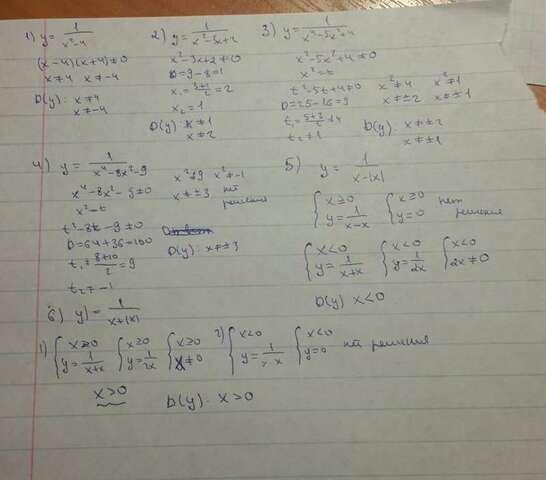 1) y = 1/(x²-4)
(x-4)(x+4)≠0
x≠4 x≠-4
D(y): x≠4
x≠-4
2) y = 1/(x²-3x+2)
x²-3x+2≠0
D=9-8=1
x₁=(3+1)/2=2
x₂=1
D(y): x≠1
x≠2
3) y = 1/(x⁴-5x²+4)
x⁴-5x²+4≠0
x²=t
t²-5t+4≠0
D=25-16=9
t₁=(5+3)/2≠4
t₂≠1
x²≠4 x²≠1
x≠±2 x≠±1
D(y): x≠±2
x≠±1
4) y = 1/(x⁴-8x²-9)
x⁴-8x²-9≠0
x²=t
t²-8t-9≠0
D=64+36=100
t₁≠(8+10)/2=9
t₂≠-1
x²≠9 x²≠-1
x≠±3 нет
решения
D(y): x≠±3
5) y = 1/(x-|x|)
{x≥0 {x≥0 нет
{y=1/(x-x) {y=0 решения
{x<0 {x<0 {x<0
{y=1/(x+x) {y=1/2x {2x≠0
D(y) x<0
6) y = 1/(x+|x|)
1) {x≥0 {x≥0 {x≥0
{y=1/(x+x) {y=1/2x {x≠0
x>0
2) {x<0 {x<0 нет решения
{y=1/(x-x) {y=0
D(y): x>0